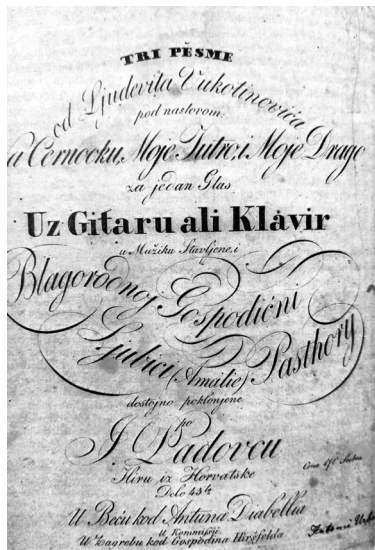 TRI PĚSME
od Ljudevita Vukotinovića
pod naslovom:
a Černooku, Moje Jutro, i Moje Drago
za jedan Glas
Uz Gitaru ali Klavir
u Mužiku Stavljene, i
Blagorodnoj Gospodični
Ljubici (Amalie) Pasthory
dostojno poklonjene
po
I Padovcu
Iliru iz Horvatske
Delo
U Beču kod Antuna Diabellia
U Kommisiji
U Zagrebu kod Gospodina Hiršfelda